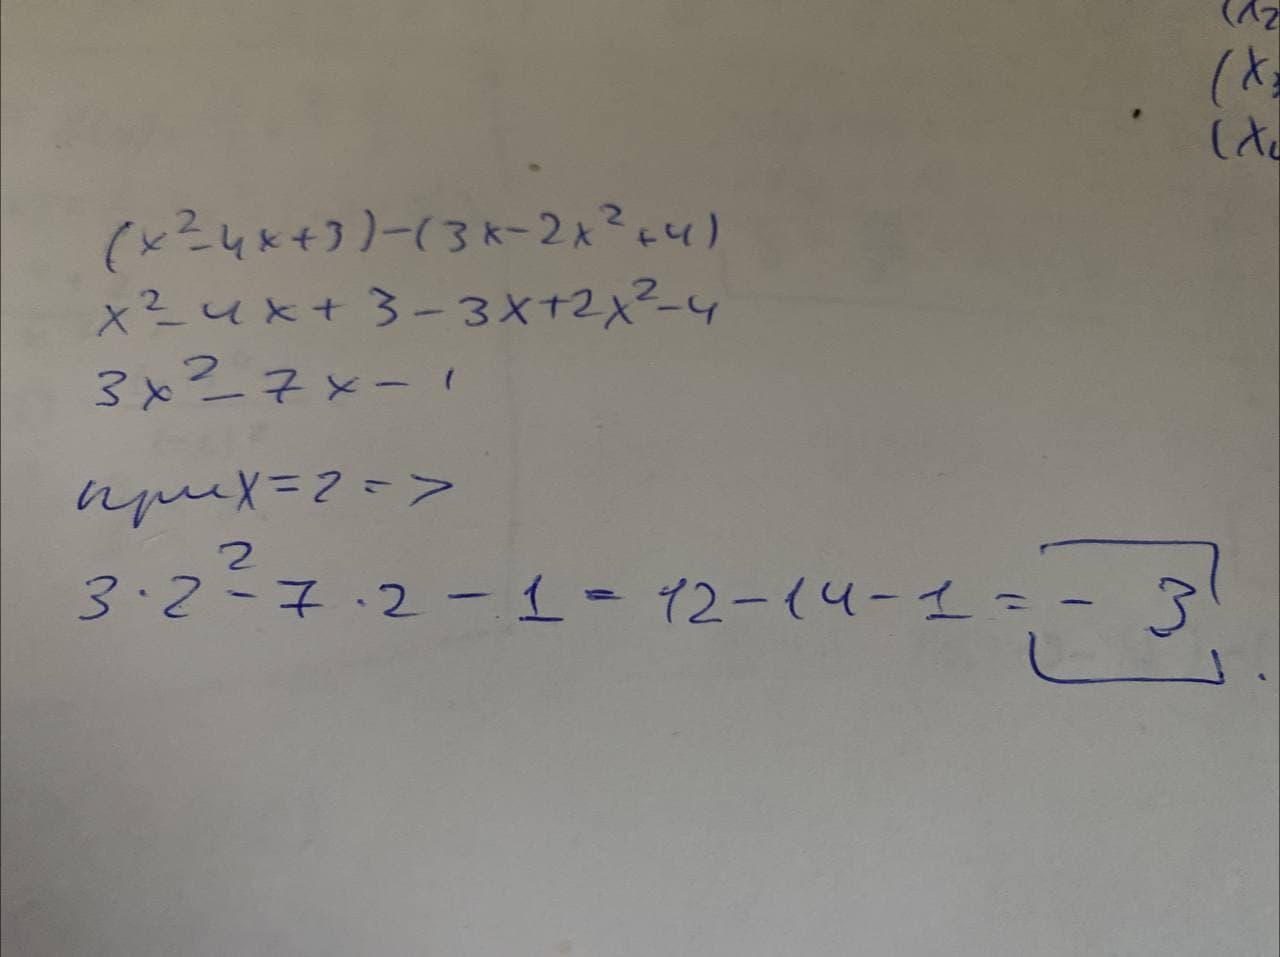 (x₂
(x₃
(x₄
(x²-4x+3)-(3x-2x²+4)
x²-4x+3-3x+2x²-4
3x²-7x-1
при x=2=>
3·2²-7·2-1=12-14-1=-3.